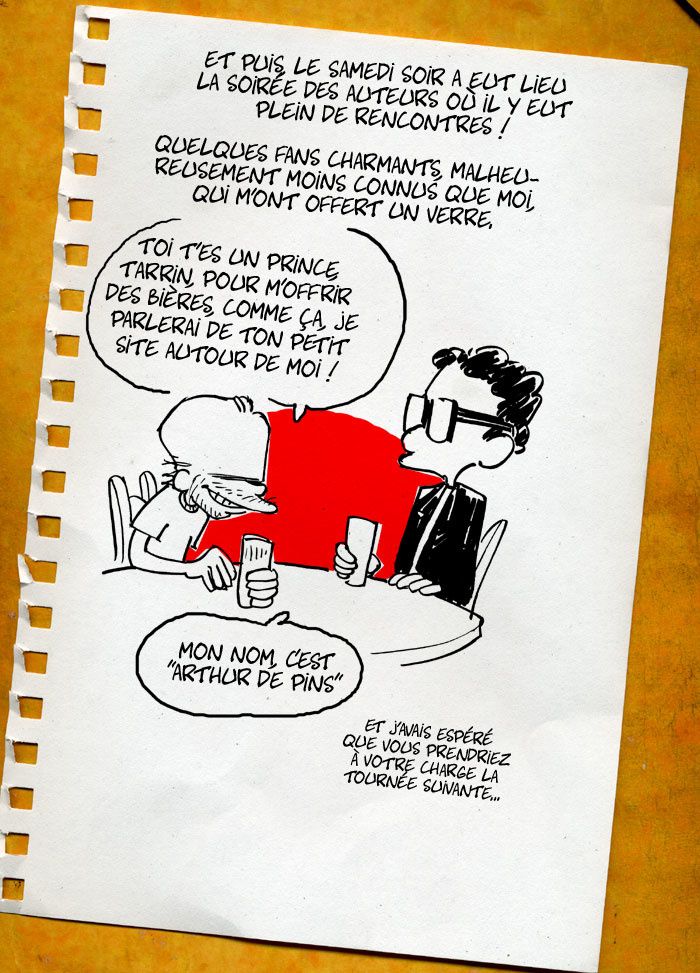 ET PUIS, LE SAMEDI SOIR A EUT LIEU
LA SOIRÉE DES AUTEURS OÙ IL Y EUT
PLEIN DE RENCONTRES !
QUELQUES FANS CHARMANTS, MALHEU-
REUSEMENT MOINS CONNUS QUE MOI,
QUI M'ONT OFFERT UN VERRE.
TOI T'ES UN PRINCE,
TARRIN, POUR M'OFFRIR
DES BIÈRES, COMME ÇA, JE
PARLERAI DE TON PETIT
SITE AUTOUR DE MOI !
MON NOM, C'EST
"ARTHUR DE PINS"
ET J'AVAIS ESPÉRÉ
QUE VOUS PRENDRIEZ
À VOTRE CHARGE LA
TOURNÉE SUIVANTE...